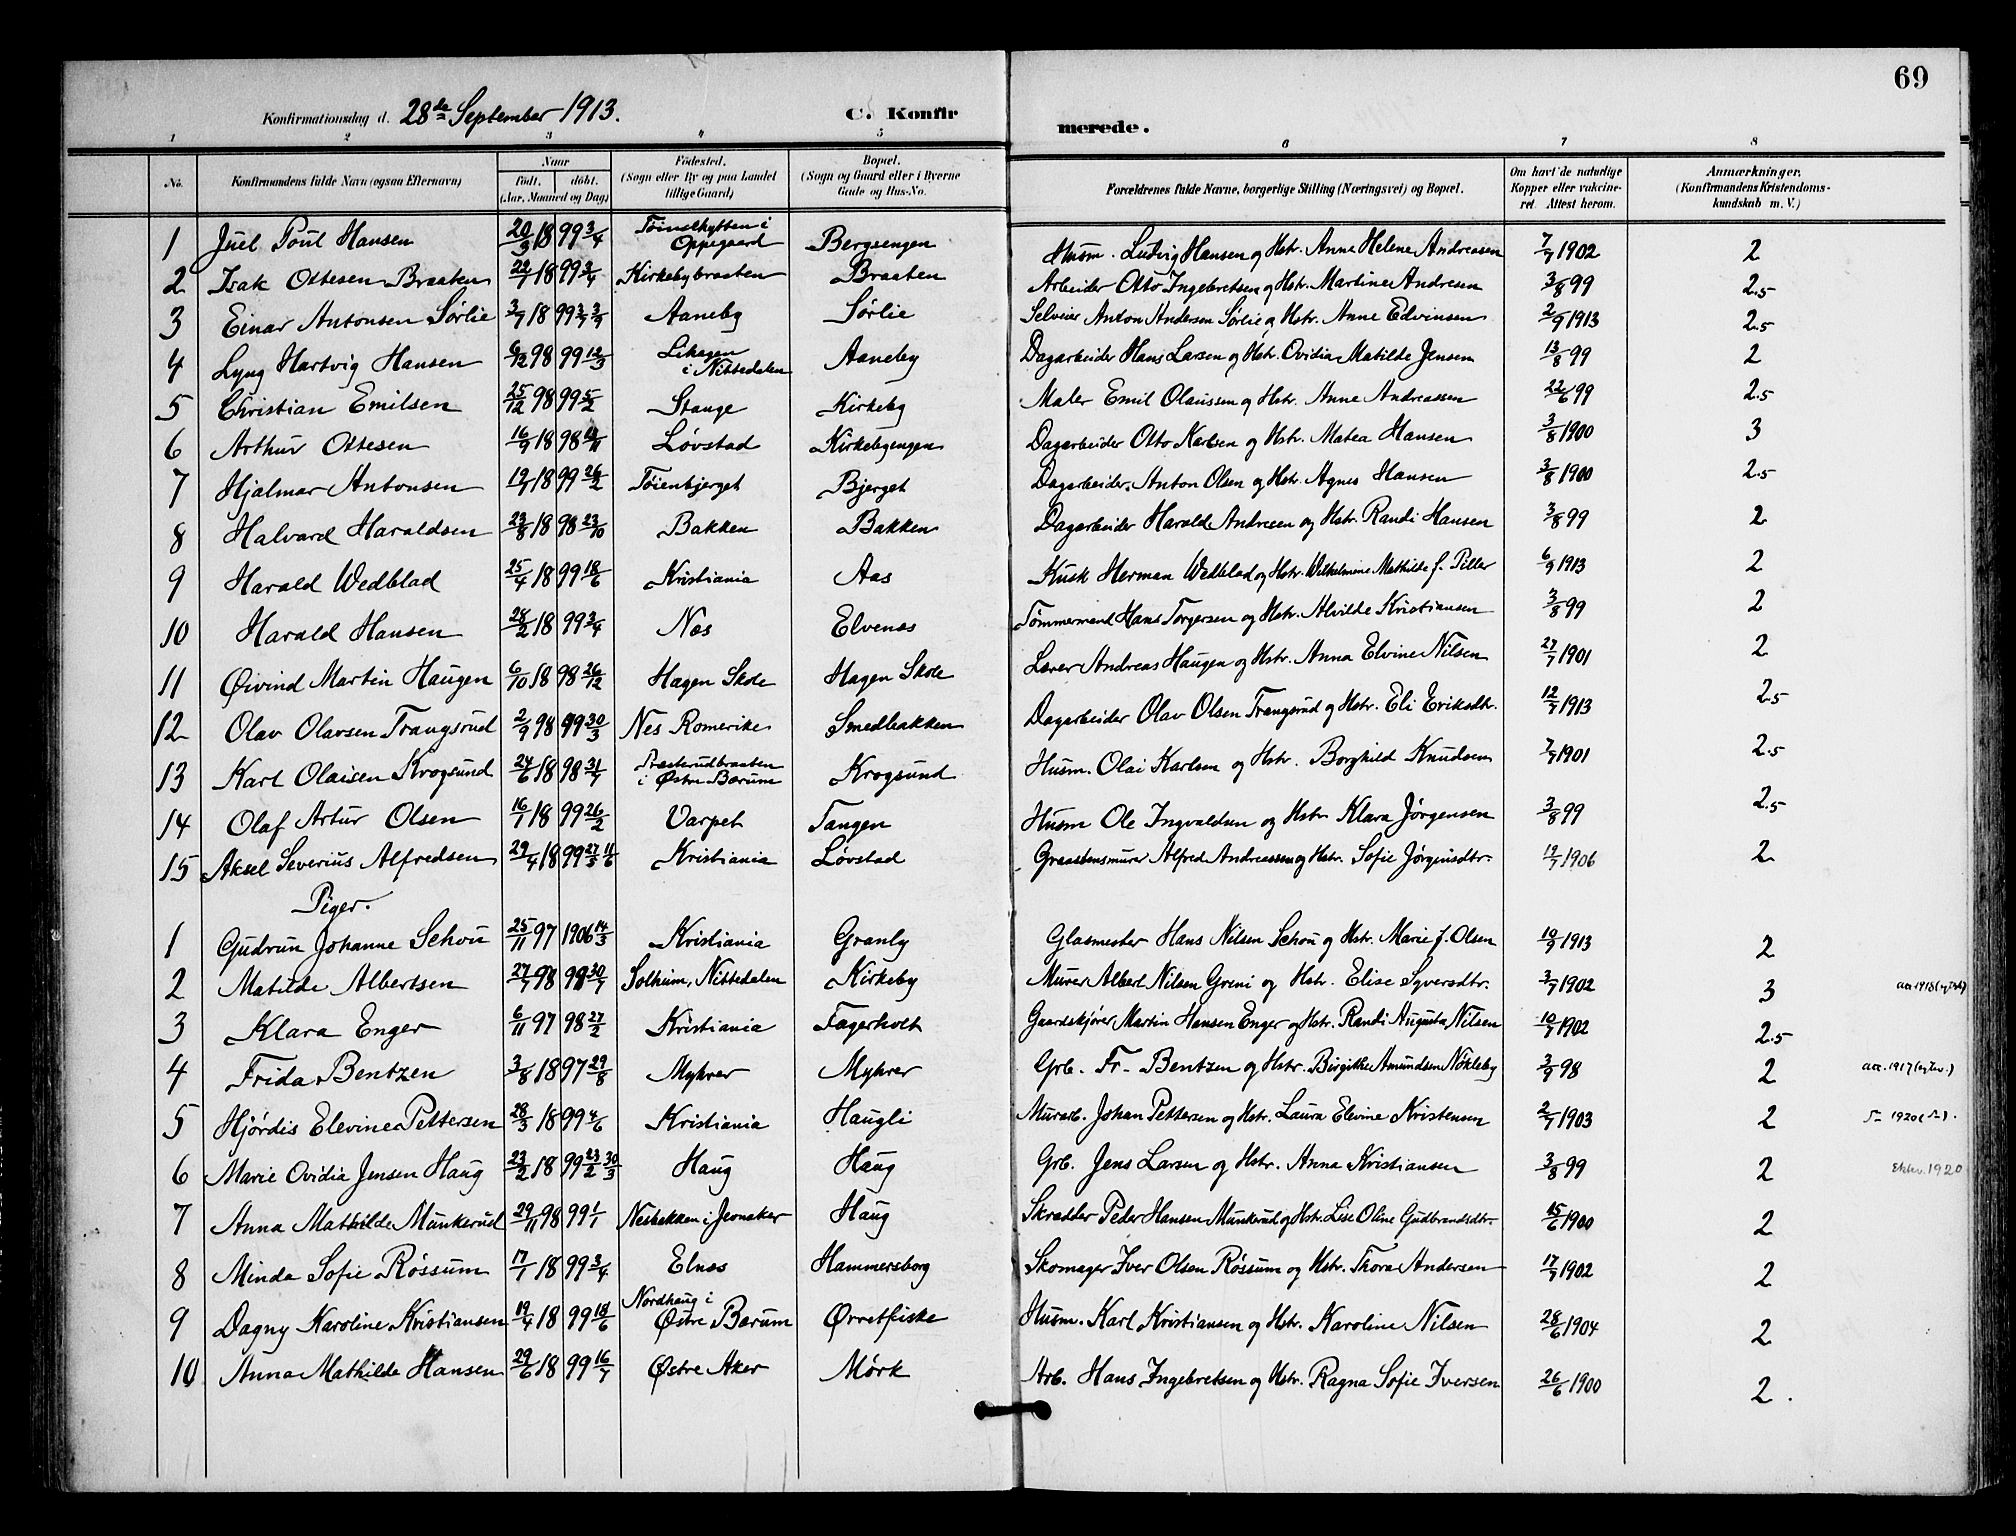 69
Konfirmationsdag d. 28de September 1913. C. Konfirmerede.
1 2 3 4 5 6 7 8
No. Konfirmandens fulde Navn (ogsaa Efternavn) Naar født. døbt. (Aar, Maaned og Dag) Fødested. (Sogn eller By og paa Landet tillige Gaard) Bopæl. (Sogn og Gaard eller i Byerne Gade og Hus-No. Forældrenes fulde Navne, borgerlige Stilling (Næringsvei) og Bopæl. Om havt de naturlige Kopper eller vakcineret. Attest herom. Anmærkninger. (Konfirmandens Kristendomskundskab m. V.)
1 Juel Poul Hansen 20/3 1899 3/4 i Oppegaard Bergsengen Husm. Ludvig Hansen og Hstr. Anne Helene Andreasen 7/7 1902 2
2 Isak Ottesen Braaten 22/1 1899 3/4 Kirkebybraaten Braaten Arbeider Otto Ingebretsen og Hstr. Martine Andresen 3/8 99 2.5
3 Einar Antonsen Sørlie 3/7 1899 3/7 3/9 Aaneby Sørlie Selveier Anton Andersen Sørlie og Hstr. Anne Edvinsen 2/9 1913 2.5
4 Lyng Hartvig Hansen 6/12 98 99 12/3 i Nittedalen Aaneby Dagarbeider Hans Larsen og Hstr. Ovidia Matilde Jensen 13/8 99 2
5 Christian Emilsen 25/12 98 99 5/2 Stange Kirkeby Maler Emil Olaussen og Hstr. Anne Andreassen 22/6 99 2.5
6 Arthur Ottesen 16/9 1898 Løvstad Kirkebyengen Dagarbeider Otto Karlsen og Hstr. Matea Hansen 3/8 1900 3
7 Hjalmar Antonsen 19/1 1899 26/2 Tøienbjerget Bjerget Dagarbeider Anton Olsen og Hstr. Agnes Hansen 3/8 1900 2.5
8 Halvard Haraldsen 23/8 1898 23/10 Bakken Bakken Dagarbeider Harald Andresen og Hstr. Randi Hansen 3/8 99 2
9 Harald Wedblad 25/4 1899 18/6 Kristiania Aas Kusk Herman Wedblad og Hstr. Wilhelmine Mathilde f. Piller 6/9 1913 2
10 Harald Hansen 28/2 1899 3/4 Nes Elvenes Tømmermand Hans Torgersen og Hstr. Alvilde Kristiansen 3/8 99 2
11 Øivind Martin Haugen 6/10 1898 26/12 Hagen Skole Hagen Skole Lærer Andreas Haugen og Hstr. Anna Elvine Nilsen 27/7 1901 2
12 Olav Olavsen Trangsrud 2/9 98 99 30/3 Nes Romerike Smedbakken Dagarbeider Olav Olsen Trangsrud og Hstr. Eli Eriksdtr. 12/7 1913 2.5
13 Karl Olaisen Krogsund 24/6 1898 31/7 i Østre Bærum Krogsund Husm. Olai Karlsen og Hstr. Borghild Knudsen 7/9 1901 2.5
14 Olaf Artur Olsen 16/1 1899 26/2 Varpet Tangen Husm Ole Ingvaldsen og Hstr Klara Jørgensen 3/8 99 2.5
15 Aksel Severius Alfredsen 29/4 1899 27/5 11/6 Kristiania Løvstad Graastensmurer Alfred Andreassen og Hstr. Sofie Jørgensdtr. 19/7 1906 2
Piger.
1 Gudrun Johanne Schou 25/11 97 1906 14/3 Kristiania Granly Glasmester Hans Nilsen Schou og Hstr. Marie f. Olsen 10/9 1913 2
2 Matilde Albertsen 27/7 98 98 30/7 Solheim, Nittedalen Kirkeby Murer Albert Nilsen Greni og Hstr. Elise Syversdtr. 3/7 1902 3
3 Klara Enger 6/11 97 98 27/2 Kristiania Fagerholt Gaardskjører Martin Hansen Enger og Hstr. Randi Augusta Nilsen 10/7 1902 2.5
4 Frida Bentzen 3/8 1897 29/8 Myhrer Myhrer Grb. Fr. Bentzen og Hstr. Birgitte Amundsen Nökleby 3/9 98 2 att. 1917
5 Hjørdis Elevine Pettersen 28/3 1899 4/6 Kristiania Haugli Murarb. Johan Pettersen og Hstr. Laura Elevine Kristensen 2/7 1903 2 1920
6 Marie Ovidia Jensen Haug 23/2 1899 23/2 30/3 Haug Haug Grb. Jens Larsen og Hstr. Anna Kristiansen 3/8 99 2 1920
7 Anna Mathilde Munkerud 29/11 98 99 1/1 Nesbakken i Jevnaker Haug Skrædder Peder Hansen Munkerud og Hstr. Lise Oline Gudbrandsdtr. 15/6 1900 2
8 Minda Sofie Røssum 17/1 1899 3/4 Elnes Hammersborg Skomager Iver Olsen Røssum og Hstr. Thora Andersen 17/7 1902 2
9 Dagny Karoline Kristiansen 19/4 1899 18/6 Nordhaug i Østre Bærum Ørretfiske Husm. Karl Kristiansen og Hstr. Karoline Nilsen 28/6 1904 2
10 Anna Mathilde Hansen 29/6 1899 16/7 Østre Aker Mørk Arb. Hans Ingebretsen og Hstr. Ragna Sofie Iversen 26/6 1900 2.